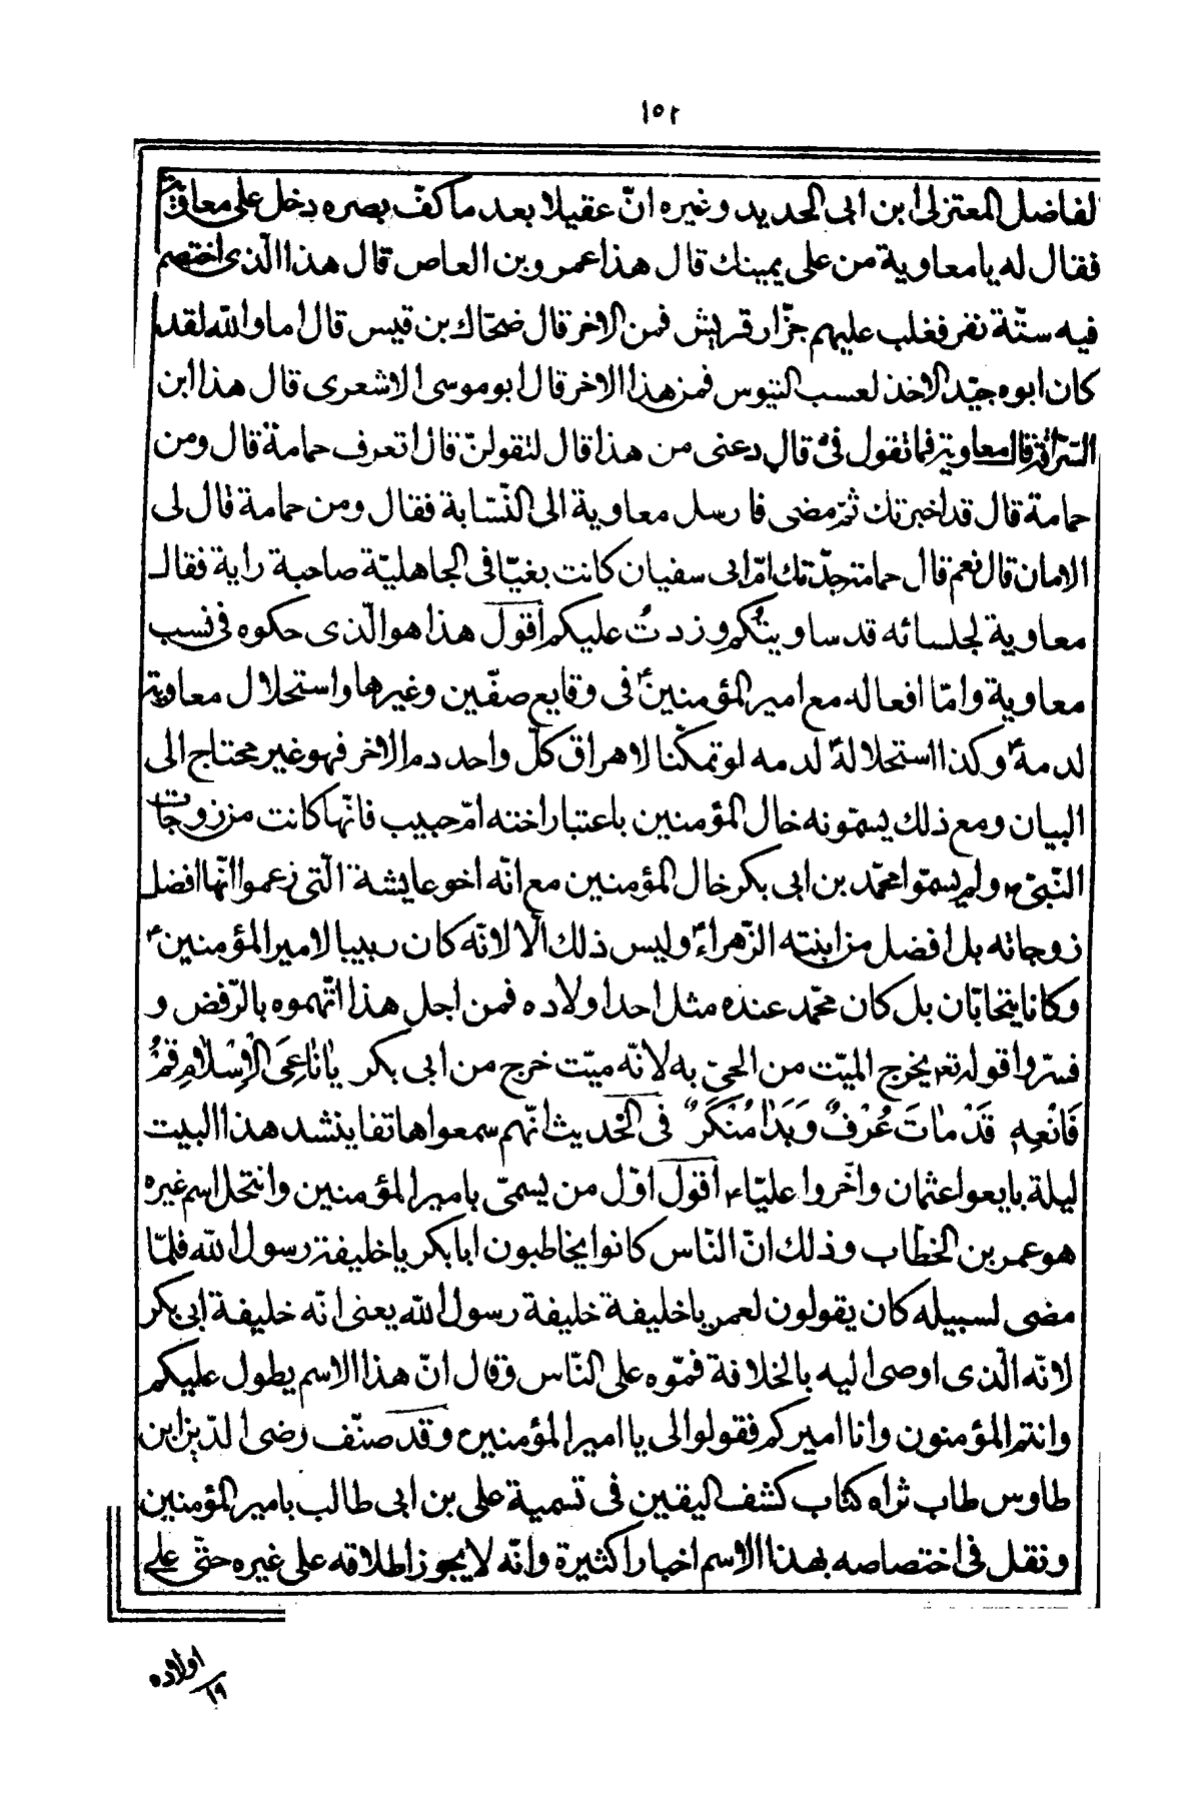 ١٥٢
لفاضل المعتزلى ابن ابى الحديد وغيره انّ عقيلا بعد ما كفّ بصره دخل على معاوية
فقال له يا معاوية من على يمينك قال هذا عمرو بن العاص قال هذا الّذى اختصم
فيه ستّة نفر فغلب عليهم جزّار قريش فمن الاخر قال ضحّاك بن قيس قال اما والله لقد
كان ابوه جيّد الاخذ لعسب التيوس فمن هذا الاخر قال ابو موسى الاشعرى قال هذا ابن
السّراقة قال معاوية فما تقول فىّ قال دعنى من هذا قال لتقولنّ قال اتعرف حمامة قال ومن
حمامة قال قد اخبرتك ثمّ مضى فارسل معاوية الى النّسّابة فقال ومن حمامة قال لى
الامان قال نعم قال حمامة جدّتك امّ ابى سفيان كانت بغيّا فى الجاهليّة صاحبة راية فقال
معاوية لجلسائه قد ساويتُكم وزدتُ عليكم اقول هذا هو الّذى حكوه فى نسب
معاوية وامّا افعاله مع امير المؤمنينؑ فى وقايع صفّين وغيرها واستحلال معاوية
لدمهؑ وكذا استحلالهؑ لدمه لو تمكّنا لاهراق كلّ واحد دم الاخر فهو غير محتاج الى
البيان ومع ذلك يسمّونه خال المؤمنين باعتبار اخته امّ حبيب فانّها كانت من زوجات
النّبىّ ص ولم يسمّوا محمّد بن ابى بكر خال المؤمنين مع انّه اخو عايشة الّتى زعموا انّها افضل
زوجاته بل افضل من ابنته الزّهراءؑ وليس ذلك الّا لانّه كان ربيبا لامير المؤمنينؑ
وكانا يتحابّان بل كان محمّد عنده مثل احد اولاده فمن اجل هذا اتّهموه بالرّفض و
فسّروا قوله تعـ يخرج الميّت من الحىّ به لانّه ميّت خرج من ابى بكر يا نَاعِىَ الْاِسْلَامِ قُمْ
فَانْعِهِ قَدْ مَاتَ عُرْفٌ وَبَدَا مُنْكَرٌ فى الحديث انّهم سمعوا هاتفا ينشد هذا البيت
ليلة بايعوا عثمان واخّروا عليّاء اقول اوّل من يسمّى بامير المؤمنين وانتحل اسم غيره
هو عمر بن الخطاب وذلك انّ النّاس كانوا يخاطبون ابا بكر يا خليفة رسول الله فلمّا
مضى لسبيله كان يقولون لعمر يا خليفة خليفة رسول الله يعنى انّه خليفة ابى بكر
لانّه الّذى اوصى اليه بالخلافة فموّه على النّاس وقال انّ هذا الاسم يطول عليكم
وانتم المؤمنون وانا اميركم فقولوا لى يا امير المؤمنين وقد صنّف رضى الدّين ابن
طاوس طاب ثراه كتاب كشف اليقين فى تسمية على بن ابى طالب بامير المؤمنين
ونقل فى اختصاصه بهذا الاسم اخبارا كثيرة وانّه لا يجوز اطلاقه على غيره حتّى على
اولاده
١٩